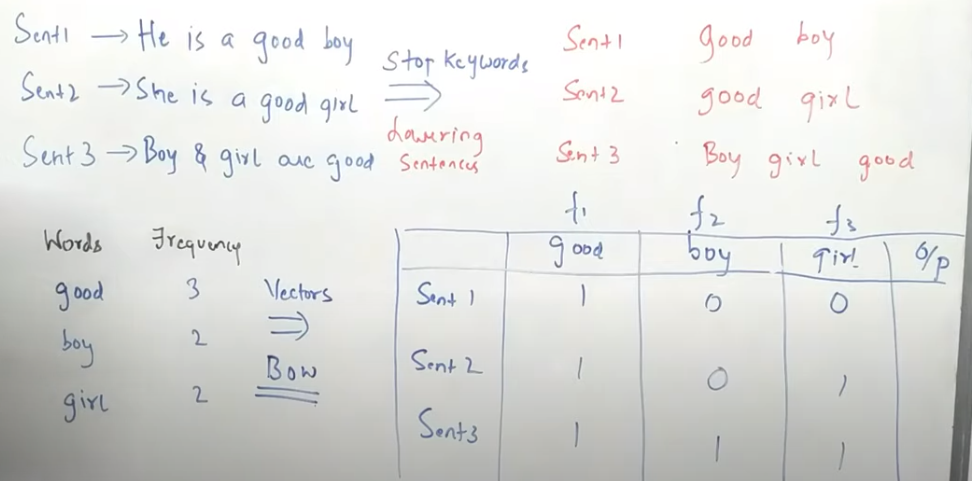 Sent1 → He is a good boy
Sent2 → She is a good girl
Sent 3 → Boy & girl are good
Stop Keywords
⇒
Lowering
Sentences
Sent1 good boy
Sent2 good girl
Sent 3 Boy girl good
Words Frequency
good 3
boy 2
girl 2
Vectors
⇒
Bow
f1 f2 f3
good boy girl O/p
Sent 1 1 0 0
Sent 2 1 0 1
Sent3 1 1 1